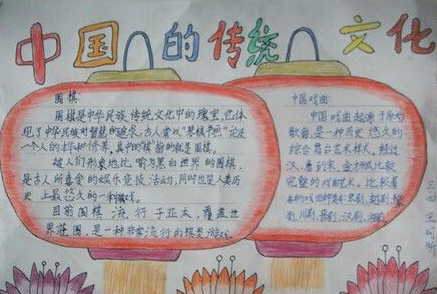 中国的传统文化
围棋:
围棋是中华民族传统文化中的瑰宝,它体
现了中华民族对智慧的追求,古人常以"琴棋书画"论及
一个人的才华和修养,其中的棋指的就是围棋。
被人们形象地比喻为黑白世界的围棋,
是古人所喜爱的娱乐竞技活动,同时也是人类历
史上最悠久的一种棋戏。
目前围棋流行于亚太,覆盖世
界范围,是一种非常流行的棋类游戏
中国戏曲:
中国戏曲起源于原始
歌舞,是一种历史悠久的
综合舞台艺术样式。经过
汉、唐到宋、金才形成比较
完整的戏曲艺术。比较著
名的戏曲种类有:京剧、
剧、川剧、晋剧、汉剧、
三